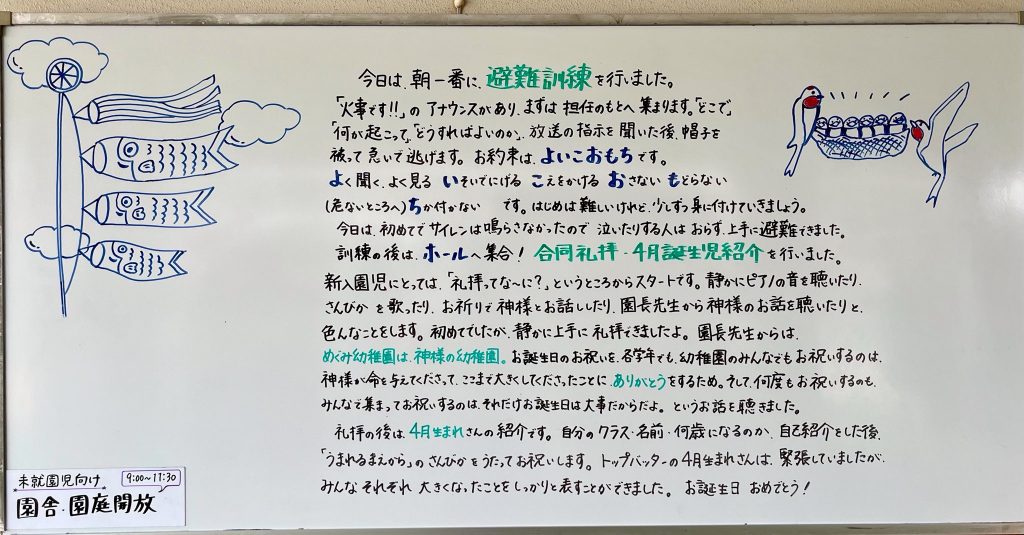 今日は、朝一番に、避難訓練を行いました。
「火事です!!」の アナウンスがあり、まずは 担任のもとへ 集まります。「どこで」
「何が起こって」「どうすればよいのか」、放送の指示を聞いた後、帽子を
被って 急いで 逃げます。お約束は、よいこおもち です。
よく聞く、よく見る いそいでにげる こえをかける おさない もどらない
(危ないところへ)ちか付かない です。はじめは難しいけれど、少しずつ身に付けていきましょう。
今日は、初めてで サイレンは鳴らさなかったので 泣いたりする人は おらず、上手に避難できました。
訓練の後は、ホールへ集合! 合同礼拝・4月誕生児紹介を行いました。
新入園児にとっては、「礼拝ってな〜に?」、というところからスタートです。静かにピアノの音を聴いたり、
さんびか を歌ったり、お祈りで神様とお話ししたり、園長先生から神様のお話を聴いたりと、
色んなことをします。初めてでしたが、静かに上手に 礼拝できましたよ。園長先生からは、
めぐみ幼稚園は、神様の幼稚園。お誕生日のお祝いを、各学年でも、幼稚園のみんなでもお祝いするのは、
神様が命を与えてくださって、ここまで大きくしてくださったことに、ありがとうをするため。そして、何度もお祝いするのも、
みんなで集まってお祝いするのは、それだけお誕生日は大事だからだよ。というお話を聴きました。
礼拝の後は、4月生まれさんの紹介です。自分のクラス・名前・何歳になるのか、自己紹介をした後、
「うまれるまえから」のさんびかをうたってお祝いします。トップバッターの4月生まれさんは、緊張していましたが、
みんなそれぞれ 大きくなったことをしっかりと表すことができました。お誕生日 おめでとう!
未就園児向け 9:00〜11:30
園舎・園庭開放